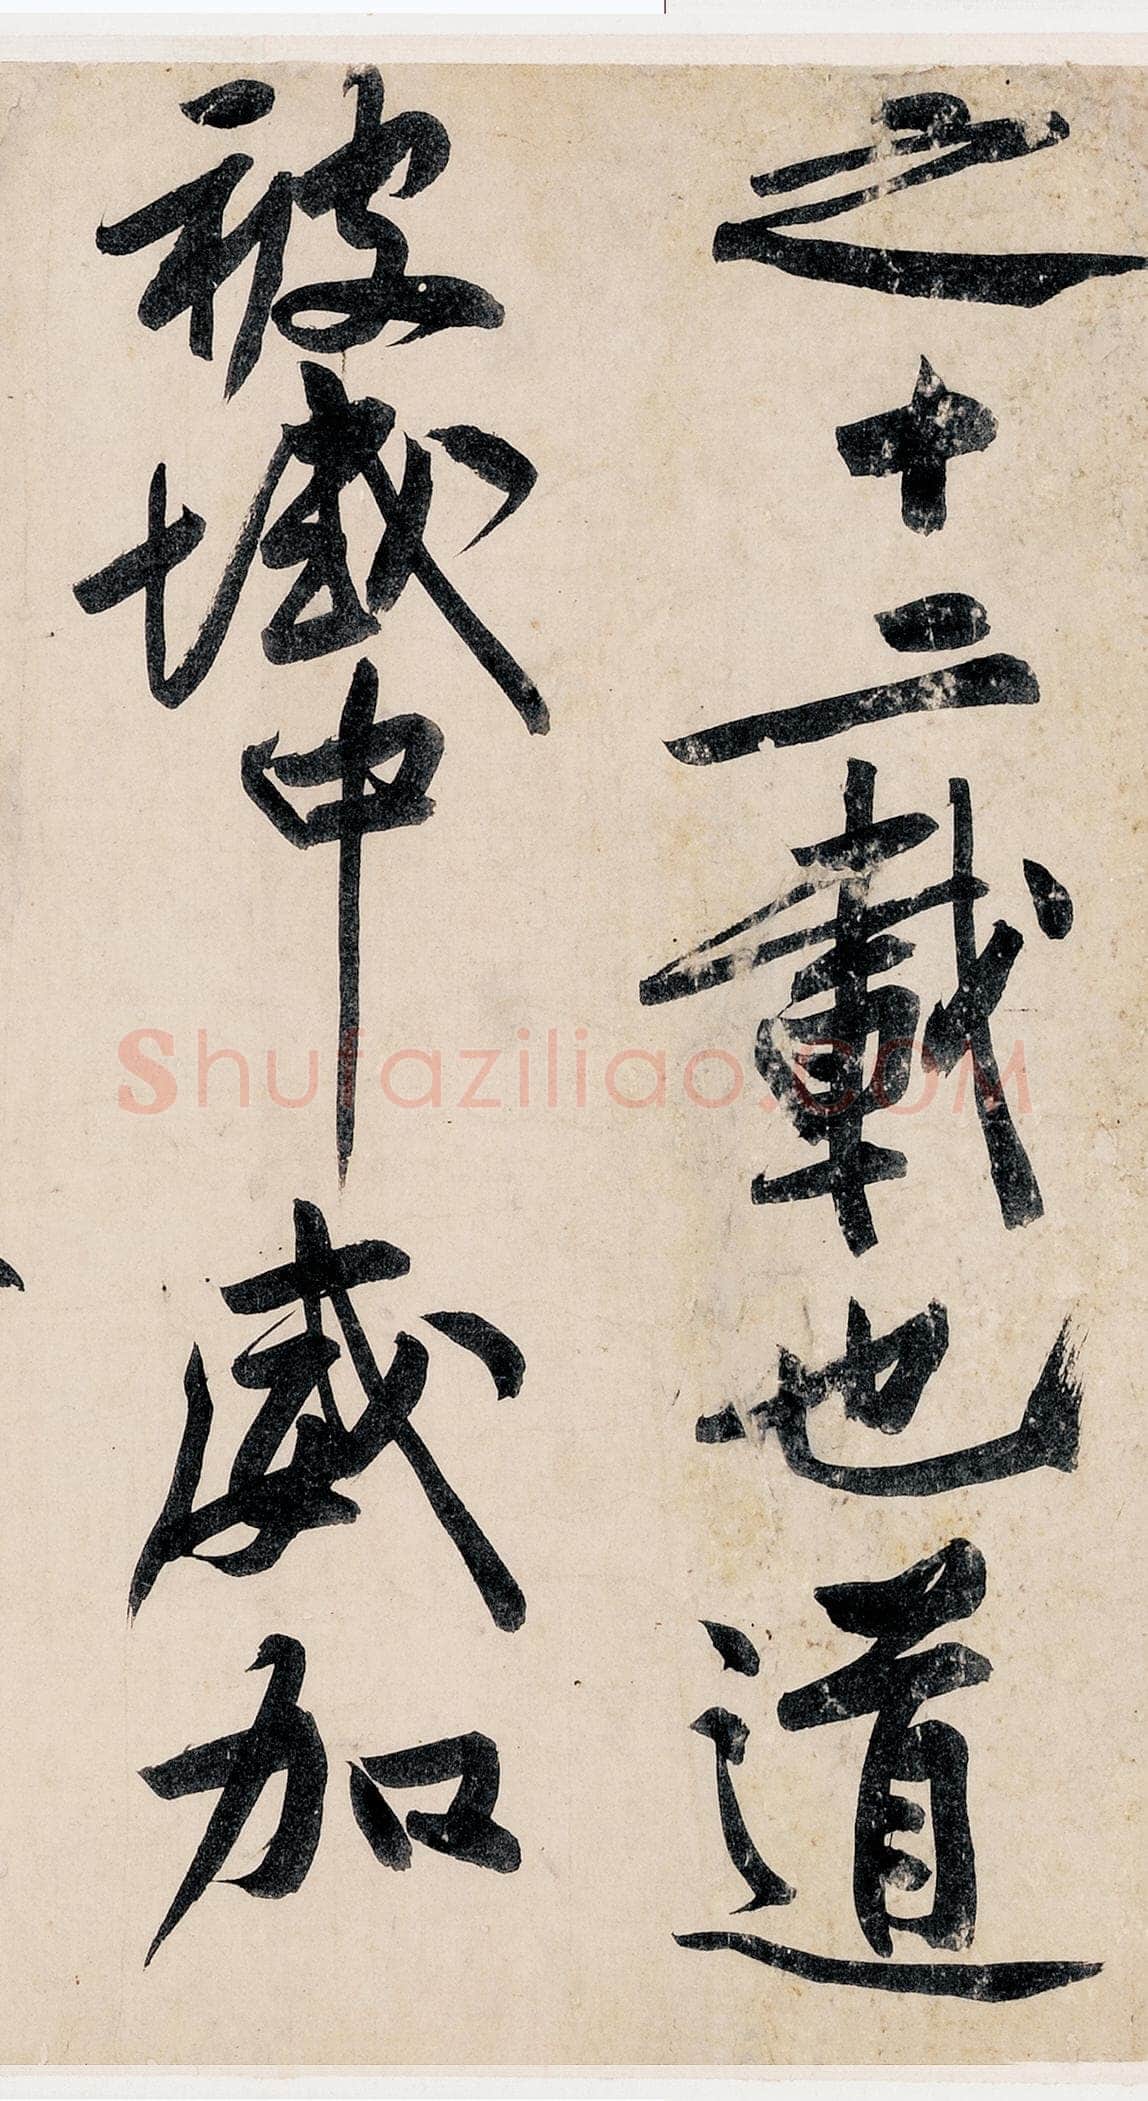 之十二載也道
被域中威加
Shufaziliao.COM